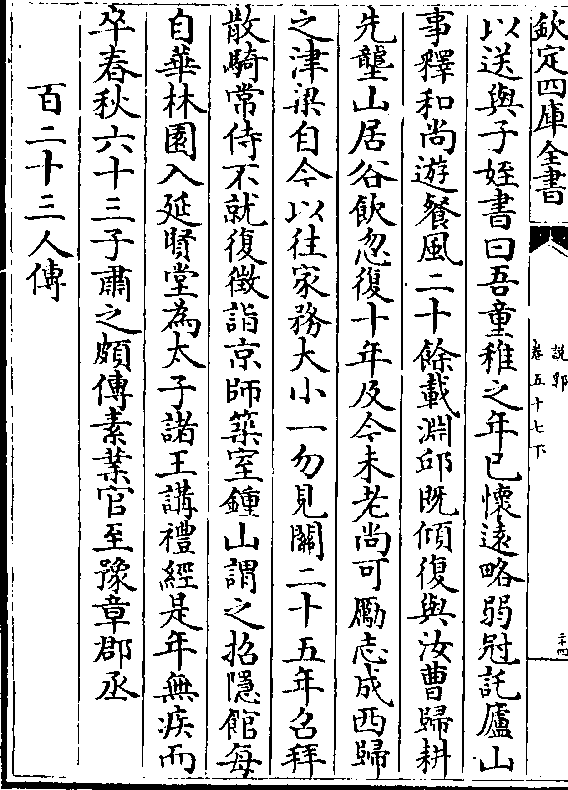 欽定四庫全書
說郛
卷五十七下
二十四
以送與子姪書曰吾童稚之年已懷遠略弱冠託廬山
事釋和尚遊餐風二十餘載淵邱既傾復與汝曹歸耕
先壟山居谷飲忽復十年及今未老尚可勵志成西歸
之津梁自今以往家務大小一勿見關二十五年召拜
散騎常侍不就復徵詣京師築室鍾山謂之招隱館每
自華林園入延賢堂為太子諸王講禮經是年無疾而
卒春秋六十三子肅之頗傳素業官至豫章郡丞
百二十三人傳